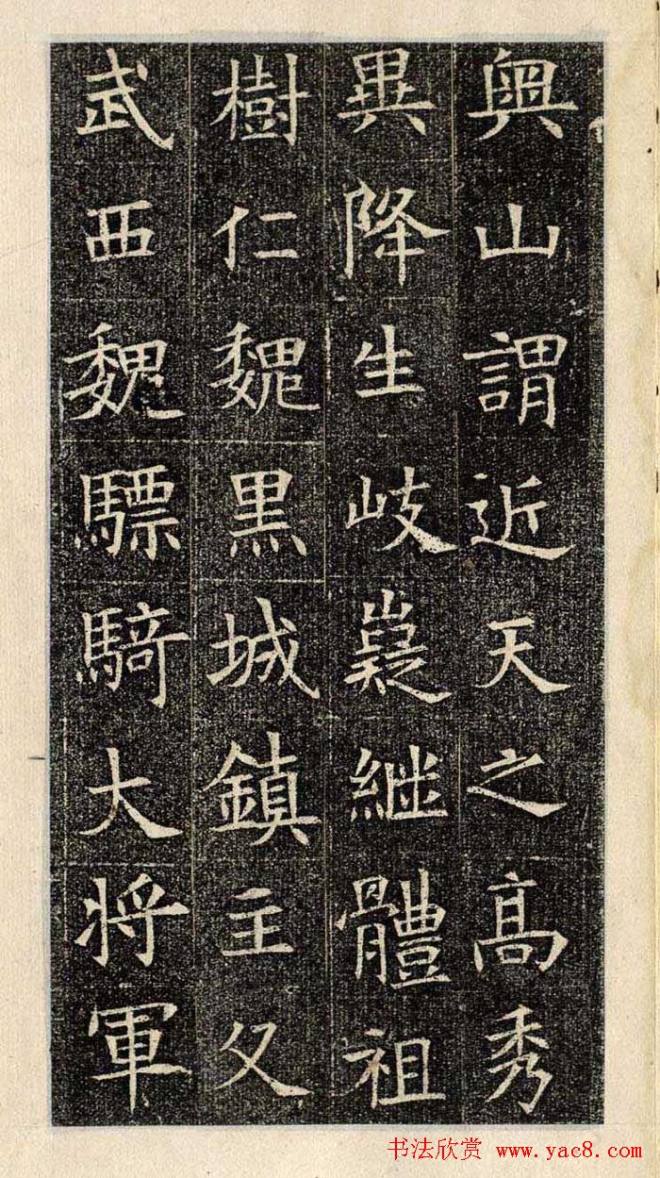 奥山謂近天之髙秀
異降生岐嶷継體祖
樹仁魏黒城鎮主父
武西魏驃騎大将軍
书法欣赏 www.yac8.com